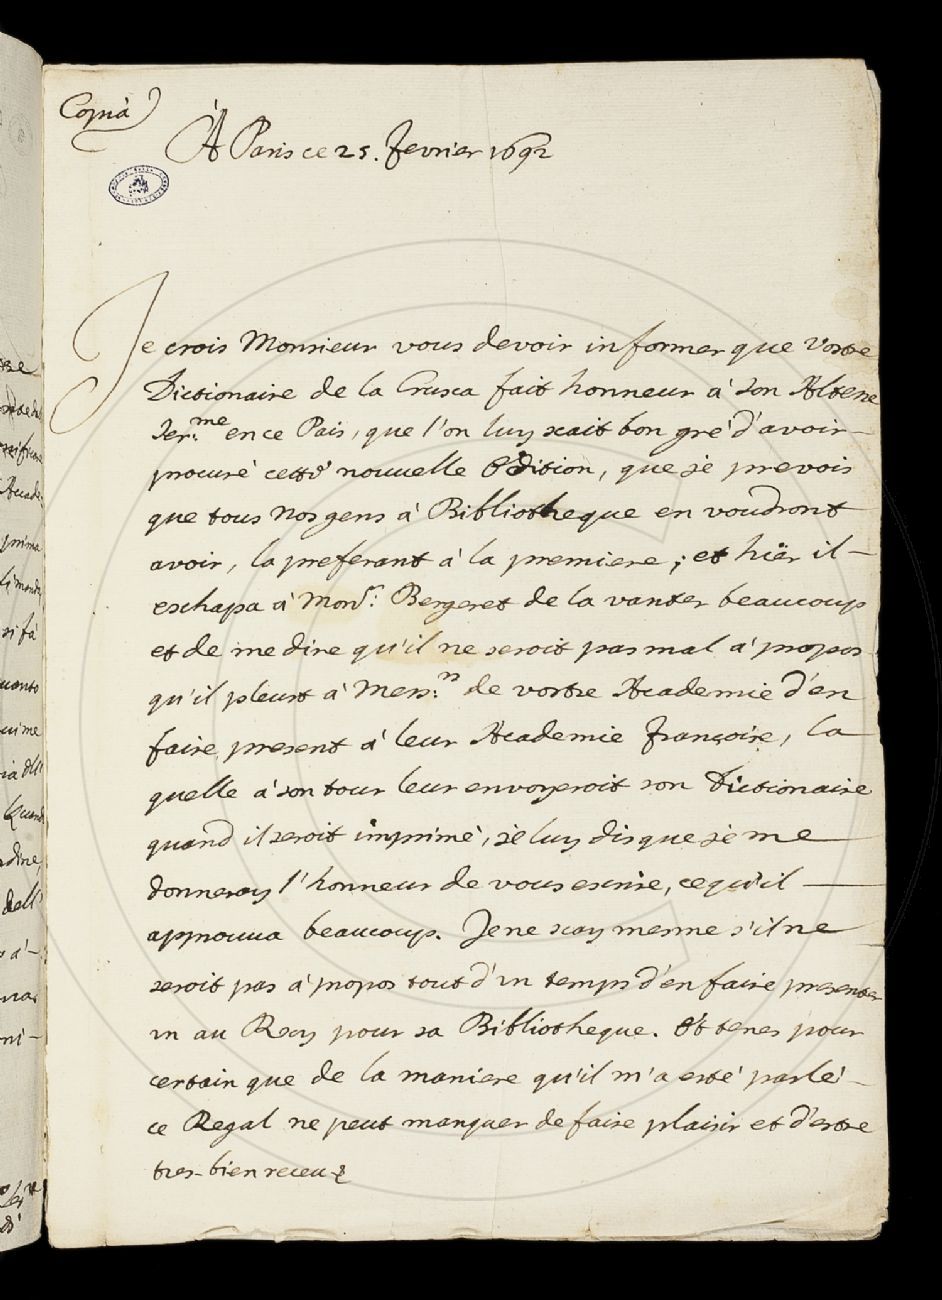 Copia
À Paris ce 25. fevrier 1692
Je crois Monsieur vous devoir informer que Vostre
Dictionaire de la Crusca fait honneur à son Altesse
Ser.me en ce Pais, que l'on luy scait bon gré d'avoir
procuré cette nouvelle Edition, que je prevois
que tous nos gens à Bibliotheque en voudront
avoir, la preferant à la premiere; et hier il
eschapa à Mons.r Bergeret de la vanter beaucoup
et de me dire qu'il ne seroit pas mal à propos
qu'il pleust à Mess.rs de vostre Academie d'en
faire present à leur Academie françoise, la
quelle à son tour leur envoyeroit son Dictionaire
quand il seroit imprimé, je luy dis que je me
donneroy l'honneur de vous escrire, ce qu'il
approuva beaucoup. Je ne scay mesme s'il ne
seroit pas à propos tout d'un temps d'en faire presenter
un au Roy pour sa Bibliotheque. Et tenes pour
certain que de la maniere qu'il m'a esté parlé
ce Regal ne peut manquer de faire plaisir et d'estre
tres-bien receu